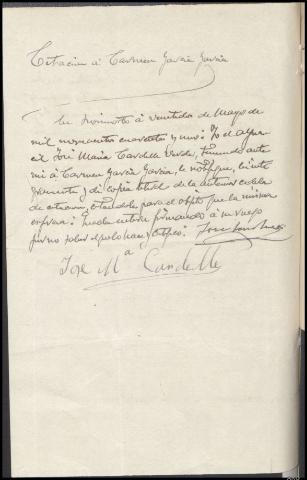 Citacion á Carmen García García
En Monmosto á veintidos de Mayo de
mil novecientos cuarenta y uno: Yo el algua-
cil José Maria Cardelle Varde, teniendo ante
mi á Carmen García García, le notifiqué, leí inte-
gramente y dí copia literal de la anterior cedula
de citacion, citandola para el objeto que la misma
expresa: queda enterada firmando á su ruego
por no saber el
José Mª Cardelle